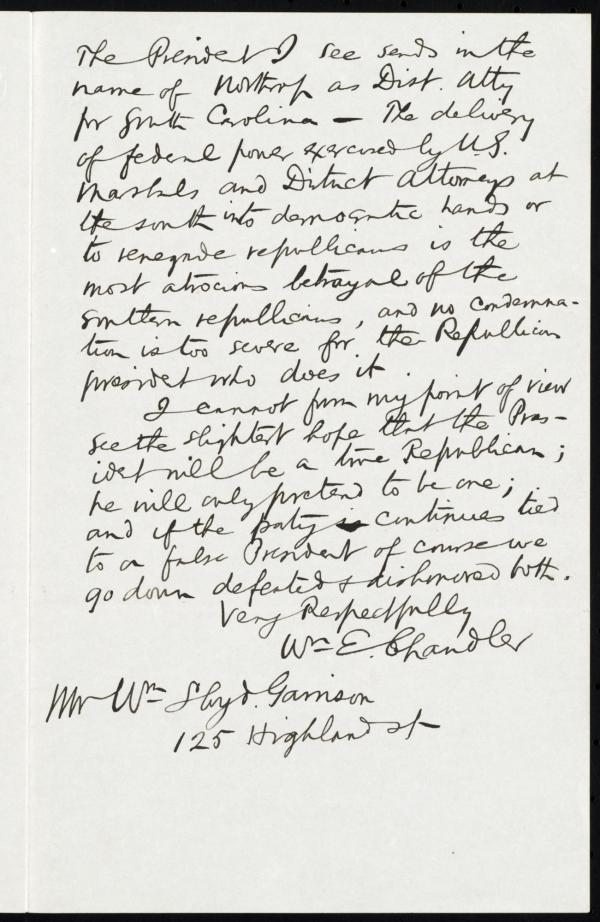 The President I see sends in the
name of Northrop as Dist. Atty
for South Carolina — The delivery
of federal power exercised by U.S.
Marshals and District Attorneys at
the south into democratic hands or
to renegade republicans is the
most atrocious betrayal of the
southern republicans, and no condemna-
tion is too severe for the Republican
president who does it.
I cannot from my point of view
see the slightest hope that the Pres-
ident will be a true Republican;
he will only pretend to be one;
and if the party continues tied
to a false President of course we
go down defeated & dishonored both.
Very Respectfully
Wm E. Chandler
Mr Wm Lloyd Garrison
125 Highland st